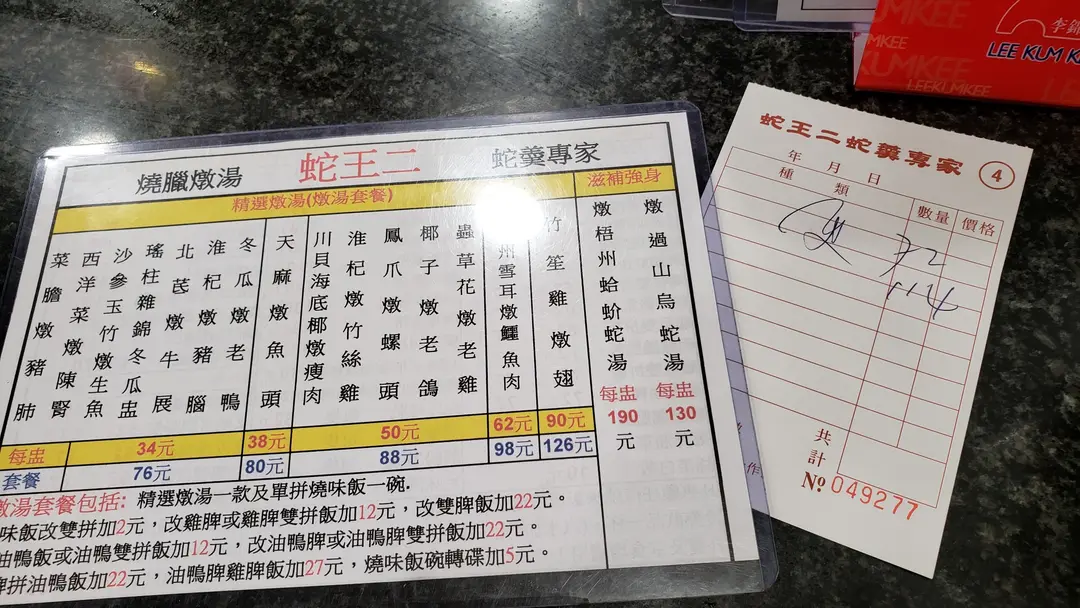 LEE KUM K
LEEKUMKEE
燒臘燉湯
蛇王二
蛇羹專家
精選燉湯(燉湯套餐)
滋補強身
菜膽燉豬肺
西洋菜燉陳腎
沙參玉竹燉生魚
瑤柱雜錦冬瓜盅
北芪燉牛展
淮杞燉豬腦
冬瓜燉老鴨
天麻燉魚頭
川貝海底椰燉瘦肉
淮杞燉竹絲雞
鳳爪燉螺頭
椰子燉老鴿
蟲草花燉老雞
州雪耳燉鱷魚肉
竹笙雞燉翅
燉梧州蛤蚧蛇湯
燉過山烏蛇湯
每盅 34元 38元 50元 62元 90元
套餐 76元 80元 88元 98元 126元
每盅 190 元
每盅 130 元
燉湯套餐包括: 精選燉湯一款及單拼燒味飯一碗.
味飯改雙拼加2元，改雞脾或雞脾雙拼飯加12元，改雙脾飯加22元。
油鴨飯或油鴨雙拼飯加12元，改油鴨脾或油鴨脾雙拼飯加22元。
脾拼油鴨飯加22元，油鴨脾雞脾飯加27元，燒味飯碗轉碟加5元。
蛇王二蛇羹專家 4
年 月 日
種類 數量 價格
共計
№ 049277